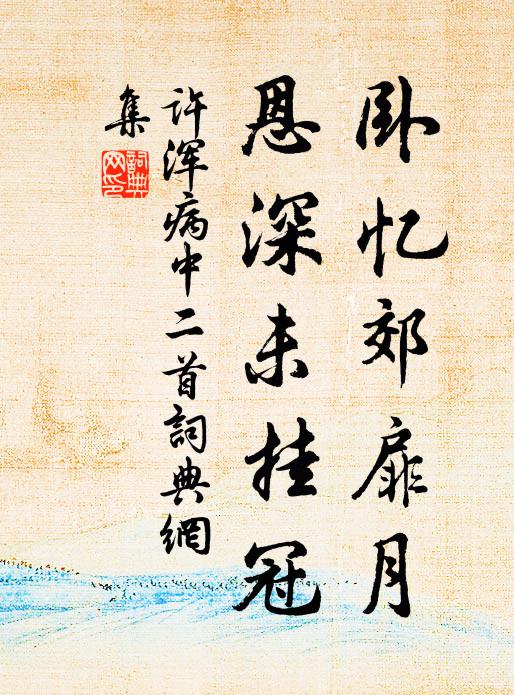 卧忆郊扉月
恩深未挂冠
许浑病中二首詞典網
集
詞典
网印